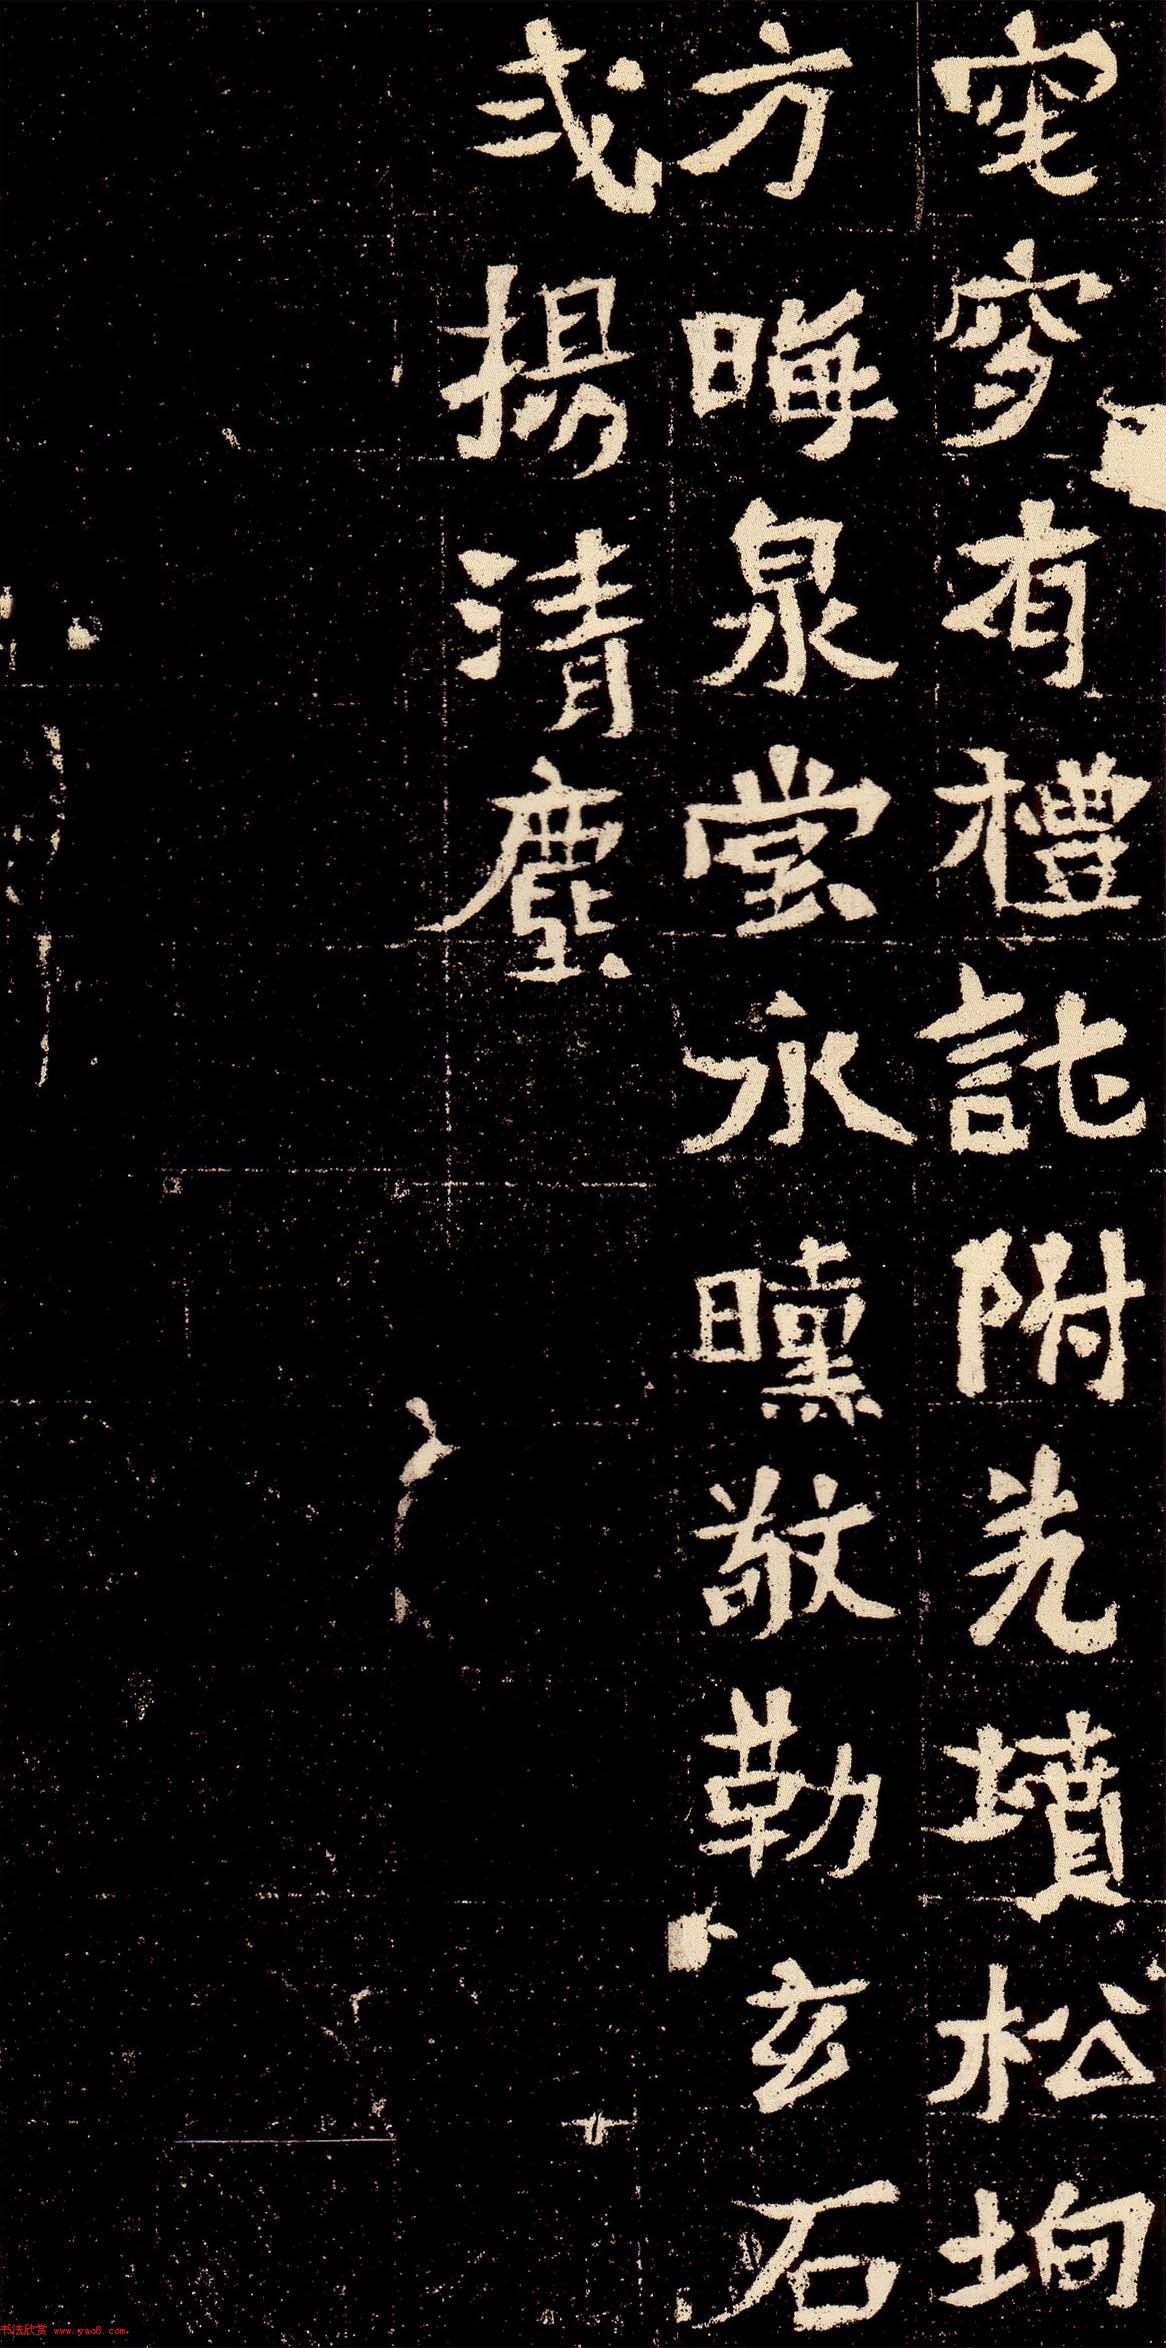 窀穸有禮託附光墳松坰
方晦泉堂永曛敬勒玄石
式揚清塵
书法欣赏 www.yac8.com